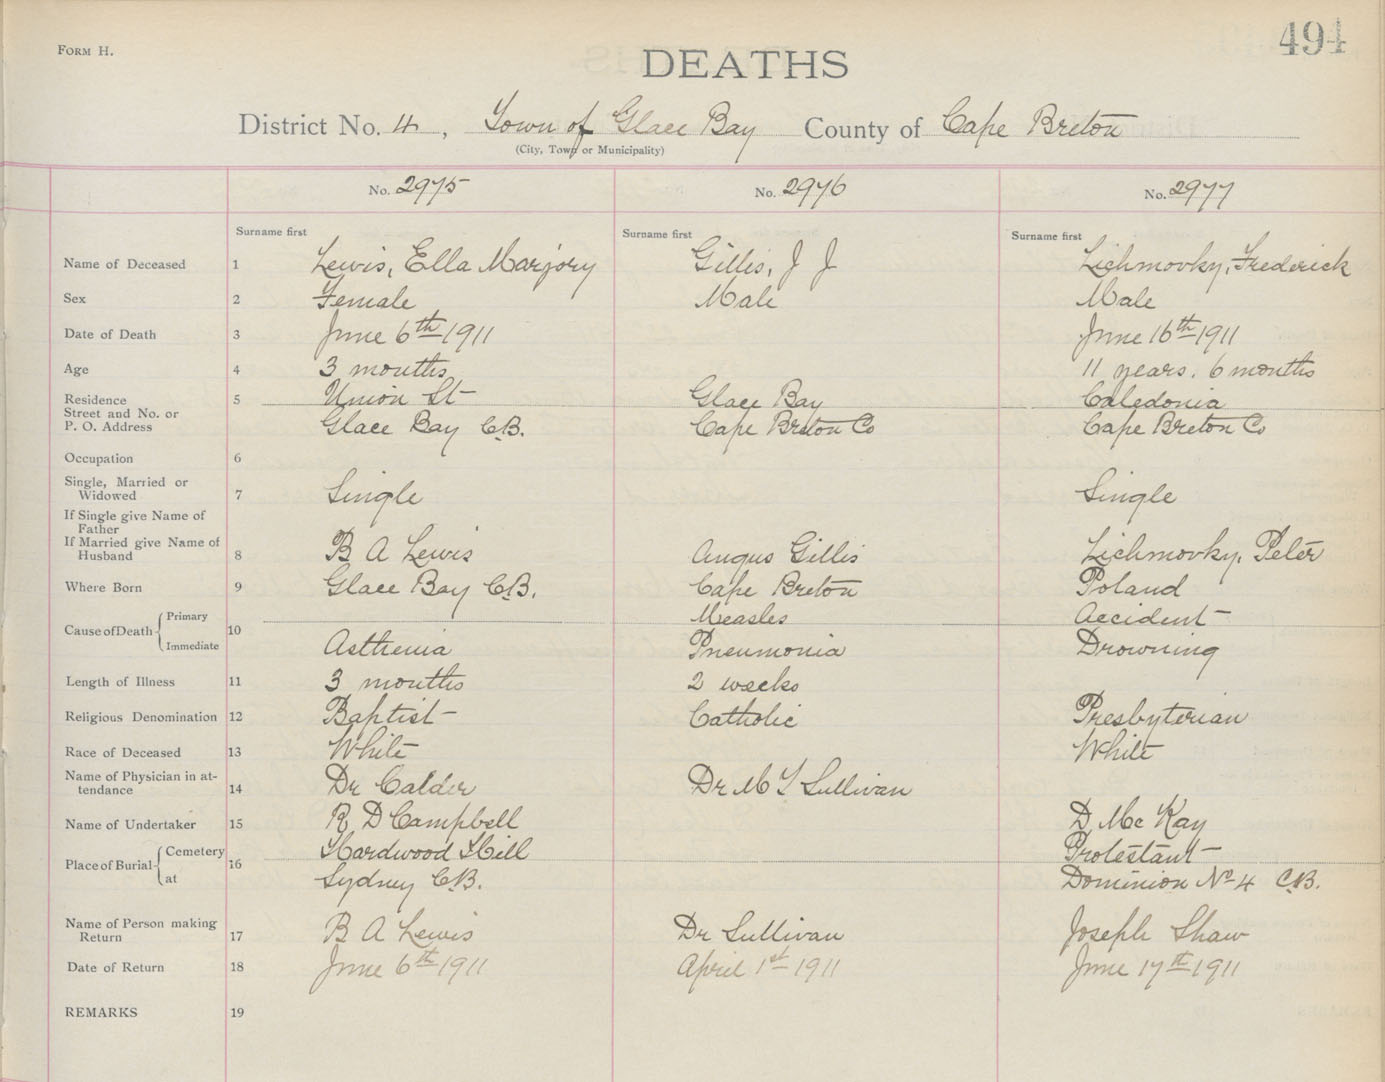 Form H.
494
DEATHS
District No. 4, Town of Glace Bay County of Cape Breton
(City, Town or Municipality)
No. 2975 No. 2976 No. 2977
Surname first Surname first Surname first
Name of Deceased 1 Lewis, Ella Marjory Gillis, J J Lichmovky, Frederick
Sex 2 Female Male Male
Date of Death 3 June 6th 1911 June 16th 1911
Age 4 3 months 11 years. 6 months
Residence 5 Union St Glace Bay Caledonia
Street and No. or
P. O. Address Glace Bay C.B. Cape Breton Co Cape Breton Co
Occupation 6
Single, Married or
Widowed 7 Single Single
If Single give Name of
Father
If Married give Name of
Husband 8 B A Lewis Angus Gillis Lichmovky, Peter
Where Born 9 Glace Bay C.B. Cape Breton Poland
Cause of Death Primary 10 Measles Accident
Immediate Asthenia Pneumonia Drowning
Length of Illness 11 3 months 2 weeks
Religious Denomination 12 Baptist Catholic Presbyterian
Race of Deceased 13 White White
Name of Physician in at-
tendance 14 Dr Calder Dr M T Sullivan
Name of Undertaker 15 R D Campbell D McKay
Place of Burial Cemetery 16 Hardwood Hill Protestant
at Sydney C.B. Dominion No 4 C.B.
Name of Person making
Return 17 B A Lewis Dr Sullivan Joseph Shaw
Date of Return 18 June 6th 1911 April 1st 1911 June 17th 1911
REMARKS 19